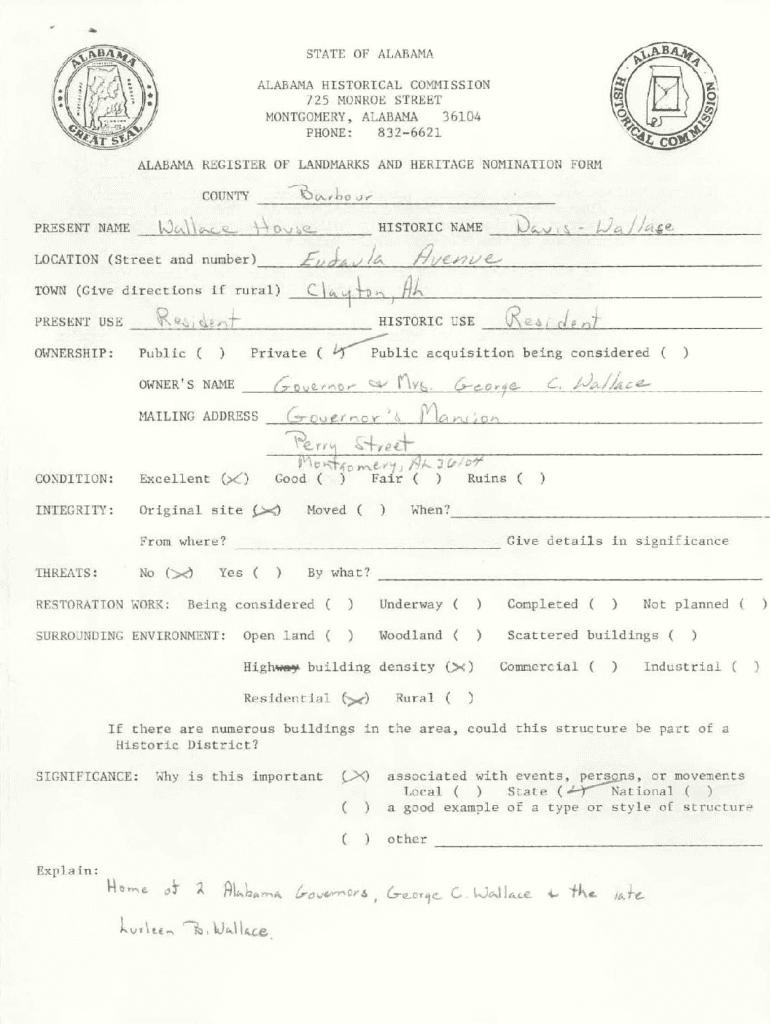 ALABAMA
GREAT SEAL
ALABAMA
HISTORICAL COMMISSION
STATE OF ALABAMA
ALABAMA HISTORICAL COMMISSION
725 MONROE STREET
MONTGOMERY, ALABAMA 36104
PHONE: 832-6621
ALABAMA REGISTER OF LANDMARKS AND HERITAGE NOMINATION FORM
COUNTY Barbour
PRESENT NAME Wallace House HISTORIC NAME Davis - Wallace
LOCATION (Street and number) Eufaula Avenue
TOWN (Give directions if rural) Clayton, AL
PRESENT USE Resident HISTORIC USE Resident
OWNERSHIP: Public ( ) Private (✓) Public acquisition being considered ( )
OWNER'S NAME Governor & Mrs. George C. Wallace
MAILING ADDRESS Governor's Mansion
Perry Street
Montgomery, AL 36104
CONDITION: Excellent (X) Good ( ) Fair ( ) Ruins ( )
INTEGRITY: Original site (X) Moved ( ) When?
From where? Give details in significance
THREATS: No (X) Yes ( ) By what?
RESTORATION WORK: Being considered ( ) Underway ( ) Completed ( ) Not planned ( )
SURROUNDING ENVIRONMENT: Open land ( ) Woodland ( ) Scattered buildings ( )
Highway building density (X) Commercial ( ) Industrial ( )
Residential (X) Rural ( )
If there are numerous buildings in the area, could this structure be part of a
Historic District?
SIGNIFICANCE: Why is this important (X) associated with events, persons, or movements
Local ( ) State (✓) National ( )
( ) a good example of a type or style of structure
( ) other
Explain:
Home of 2 Alabama Governors, George C. Wallace & the late
Lurleen B. Wallace.